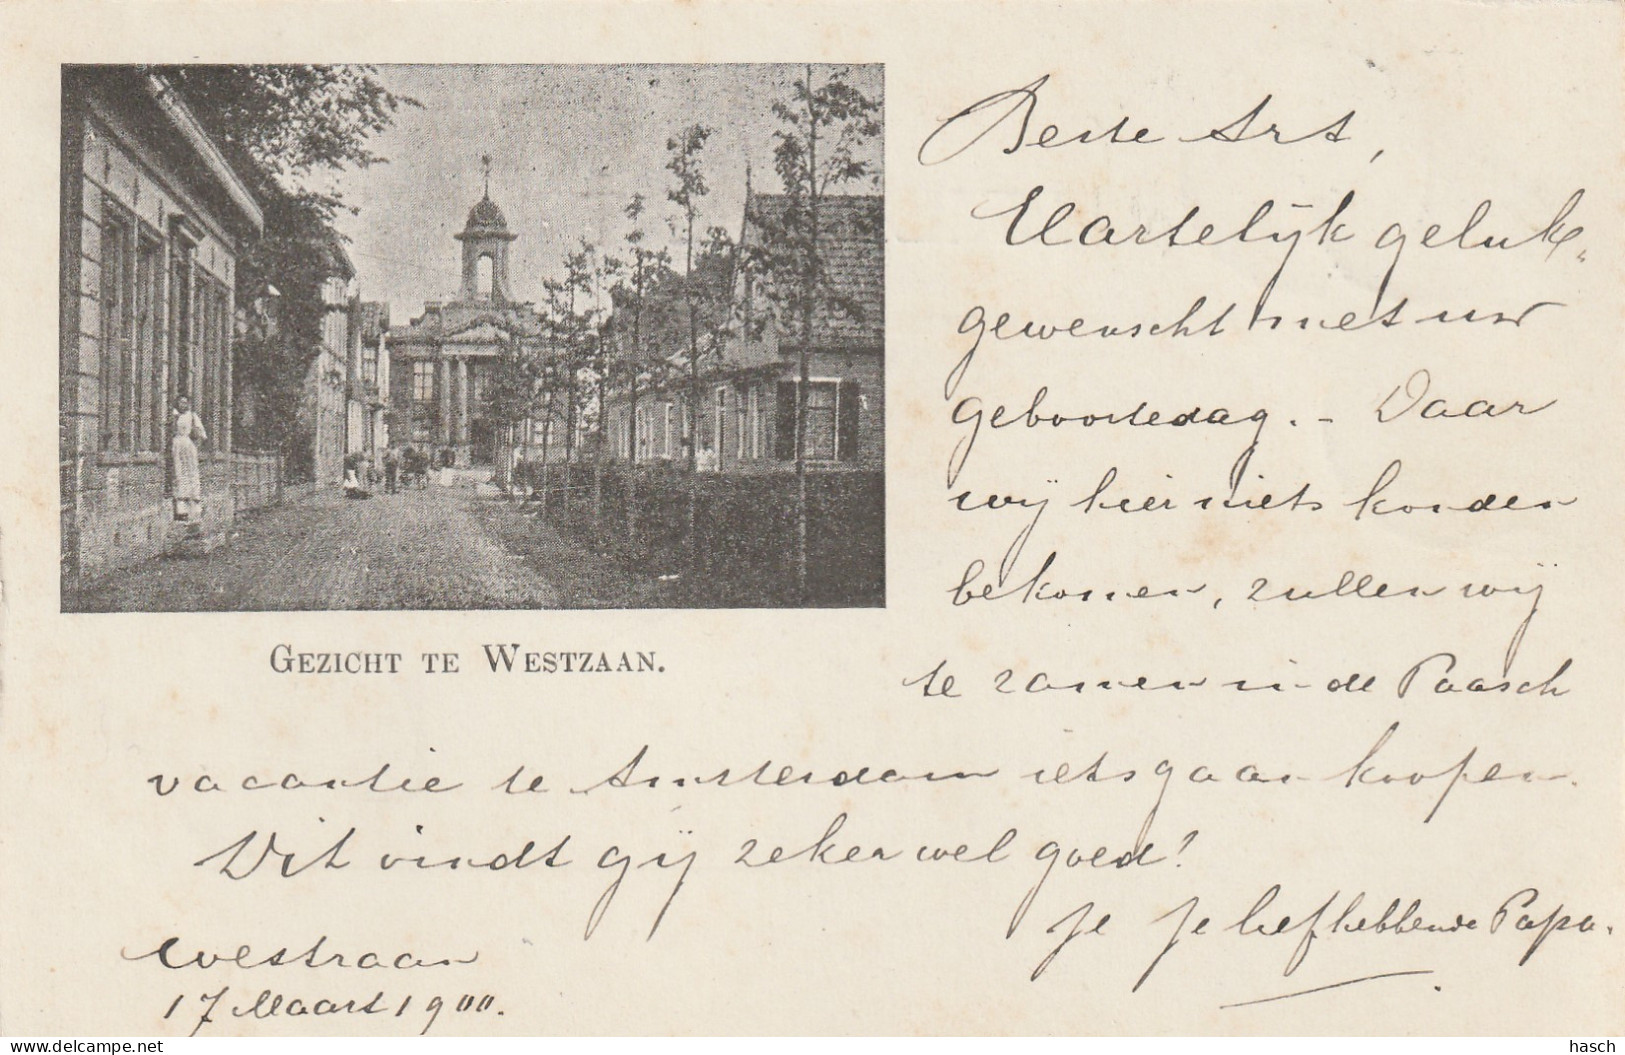 Beste Art,
Hartelijk geluk„
gewenscht met uw
geboortedag. – Daar
wij hier niets konden
bekomen, zullen wij
te zamen in de Paasch
vacantie te Amsterdam iets gaan koopen.
Dit vindt gij zeker wel goed?
Je Je liefhebbende Papa.
Westzaan
17 Maart 1900.
GEZICHT TE WESTZAAN.
delcampe.net
hasch